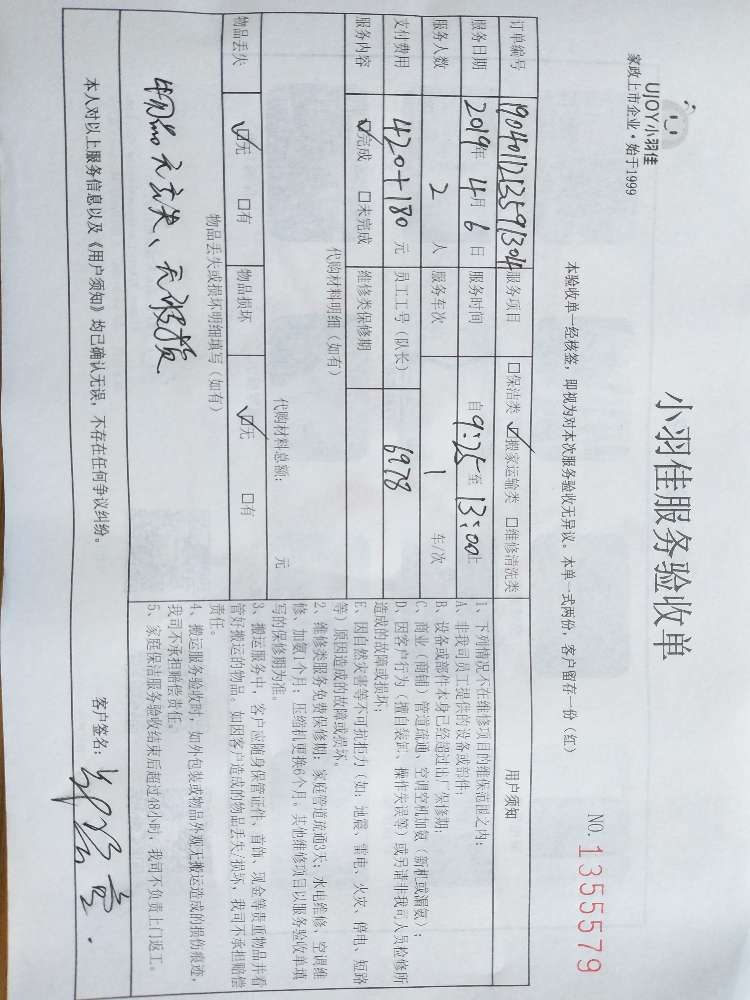 UJOY小羽佳
家政上市企业·始于1999
小羽佳服务验收单
NO. 1355579
本验收单一经核签，即视为对本次服务验收无异议。本单一式两份，客户留存一份（红）
订单编号 服务项目 □保洁类 ☑搬家运输类 □维修清洗类
服务日期 2019年 4月 6日 服务时间 自 9:25 至 13:00 止
服务人数 2 人 服务车次 1 车/次
支付费用 420+180 元 员工工号（队长） 6978
服务内容 ☑完成 □未完成 维修类保修期
代购材料明细（如有）
代购材料总额： 元
物品丢失 ☑无 □有 物品损坏 ☑无 □有
物品丢失或损坏明细填写（如有）
物品无丢失、无损坏
用户须知
1、下列情况不在维修项目的维保范围之内：
A、非我司员工提供的设备或部件；
B、设备或部件本身已经超过出厂保修期；
C、商业（商铺）管道疏通、空调空机加氨（新机或漏氨）；
D、因客户行为（擅自装卸、操作失误等）或另请非我司人员检修所
造成的故障或损坏；
E、因自然灾害等不可抗拒力（如：地震、雷电、火灾、停电、短路
等）原因造成的故障或损坏。
2、维修类服务免费保修期：家庭管道疏通3天；水电维修、空调维
修、加氨1个月；压缩机更换6个月。其他维修项目以服务验收单填
写的保修期为准。
3、搬运服务中，客户应随身保管证件、首饰、现金等贵重物品并看
管好搬运的物品。如因客户造成的物品丢失/损坏，我司不承担赔偿
责任。
4、搬运服务验收时，如外包装或物品外观无搬运造成的损伤痕迹，
我司不承担赔偿责任。
5、家庭保洁服务验收结束后超过48小时，我司不负责上门返工。
本人对以上服务信息以及《用户须知》均已确认无误，不存在任何争议纠纷。 客户签名：